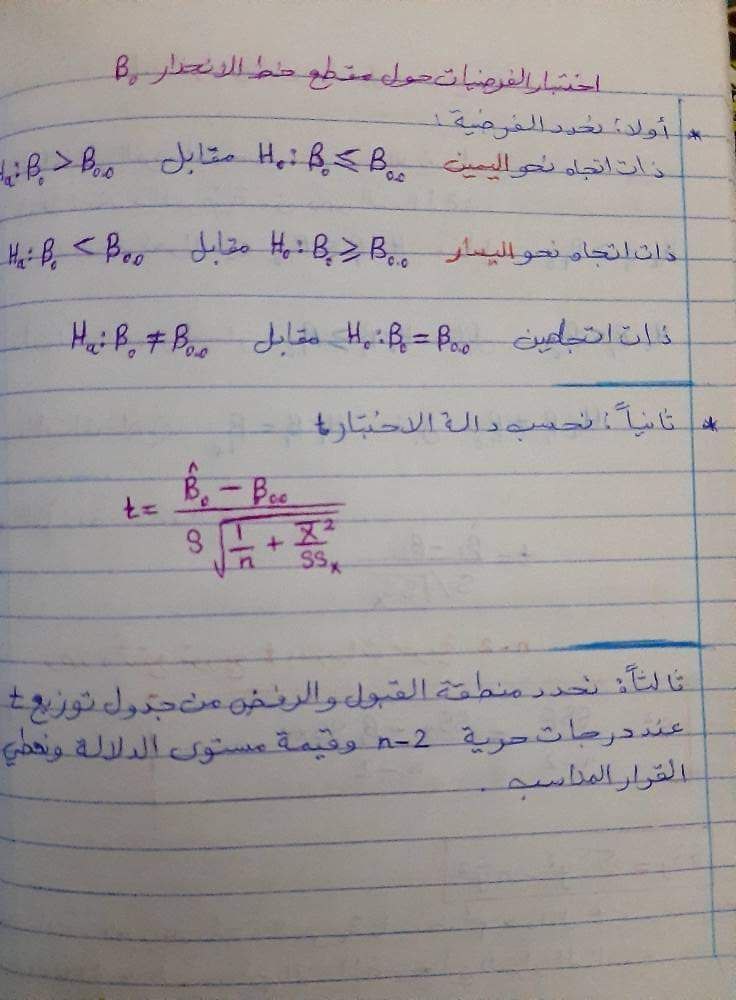 اختبار الفرضيات حول مقطع خط الانحدار B₀
* أولا: نحدد الفرضية :
ذات اتجاه نحو اليمين H₀: B₀ ≤ B₀.₀ مقابل Hₐ: B₀ > B₀.₀
ذات اتجاه نحو اليسار H₀: B₀ ≥ B₀.₀ مقابل Hₐ: B₀ < B₀.₀
ذات اتجاهين H₀: B₀ = B₀.₀ مقابل Hₐ: B₀ ≠ B₀.₀
* ثانياً: نحسب دالة الاختبار t
t = (B̂₀ − B₀.₀) / (S √(1/n + X̄²/SSₓ))
ثالثاً: نحدد منطقة القبول والرفض من جدول توزيع t
عند درجات حرية n-2 وقيمة مستوى الدلالة ونعطي
القرار المناسب .